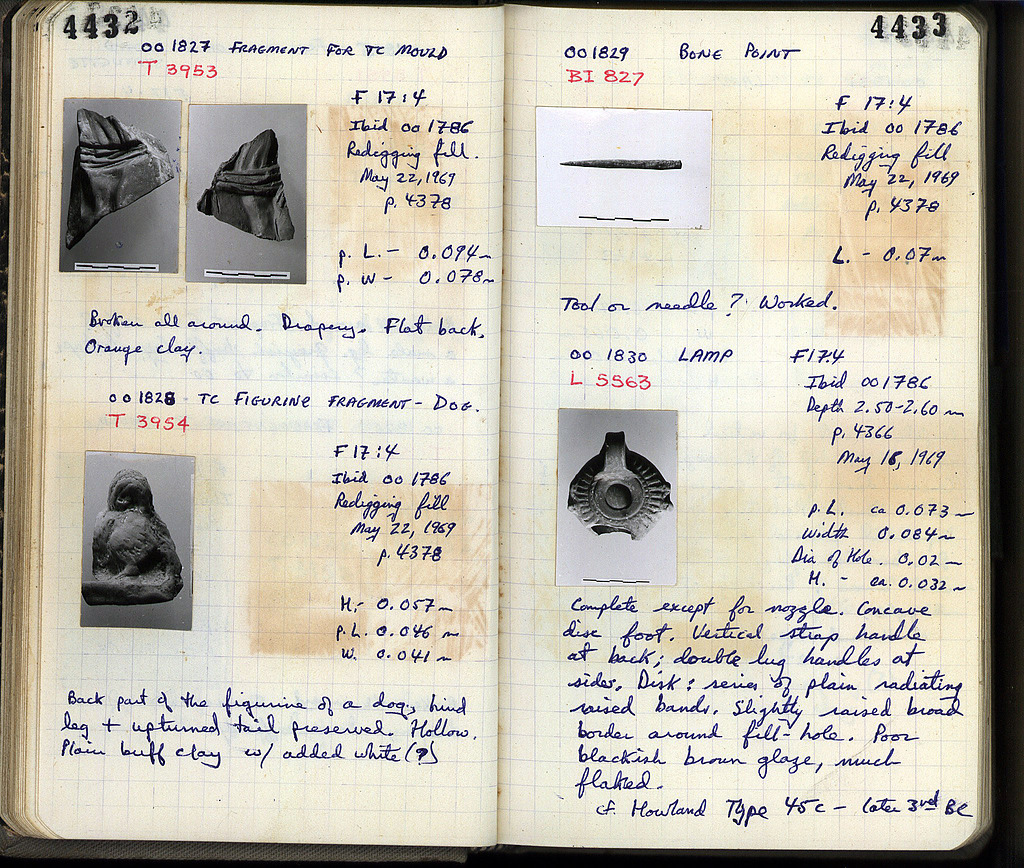 4432
oo 1827 FRAGMENT FOR TC MOULD
T 3953
F 17:4
Ibid oo 1786
Redigging fill.
May 22, 1969
p. 4378
p. L. - 0.094 m
p. W - 0.078 m
Broken all around. Drapery. Flat back.
Orange clay.
oo 1828 TC FIGURINE FRAGMENT - DOG.
T 3954
F 17:4
Ibid oo 1786
Redigging fill
May 22, 1969
p. 4378
H. - 0.057 m
p. L. 0.046 m
W. 0.041 m
Back part of the figurine of a dog; hind
leg + upturned tail preserved. Hollow.
Plain buff clay w/ added white (?)
4433
oo 1829 BONE POINT
BI 827
F 17:4
Ibid oo 1786
Redigging fill
May 22, 1969
p. 4378
L. - 0.07 m
Tool or needle? Worked.
oo 1830 LAMP F 17:4
L 5563
Ibid oo 1786
Depth 2.50-2.60 m
p. 4366
May 18, 1969
p. L. ca 0.073 m
Width 0.084 m
Dia of Hole. 0.02 m
H. - ca. 0.032 m
Complete except for nozzle. Concave
disc foot. Vertical strap handle
at back; double lug handles at
sides. Disk: series of plain radiating
raised bands. Slightly raised broad
border around fill-hole. Poor
blackish brown glaze, much
flaked.
cf. Howland Type 45c - later 3rd BC